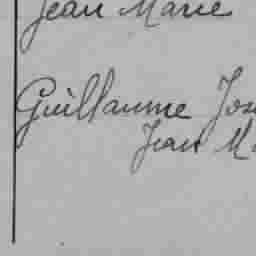 Jean Marie
Guillaume Jos
Jean Ma